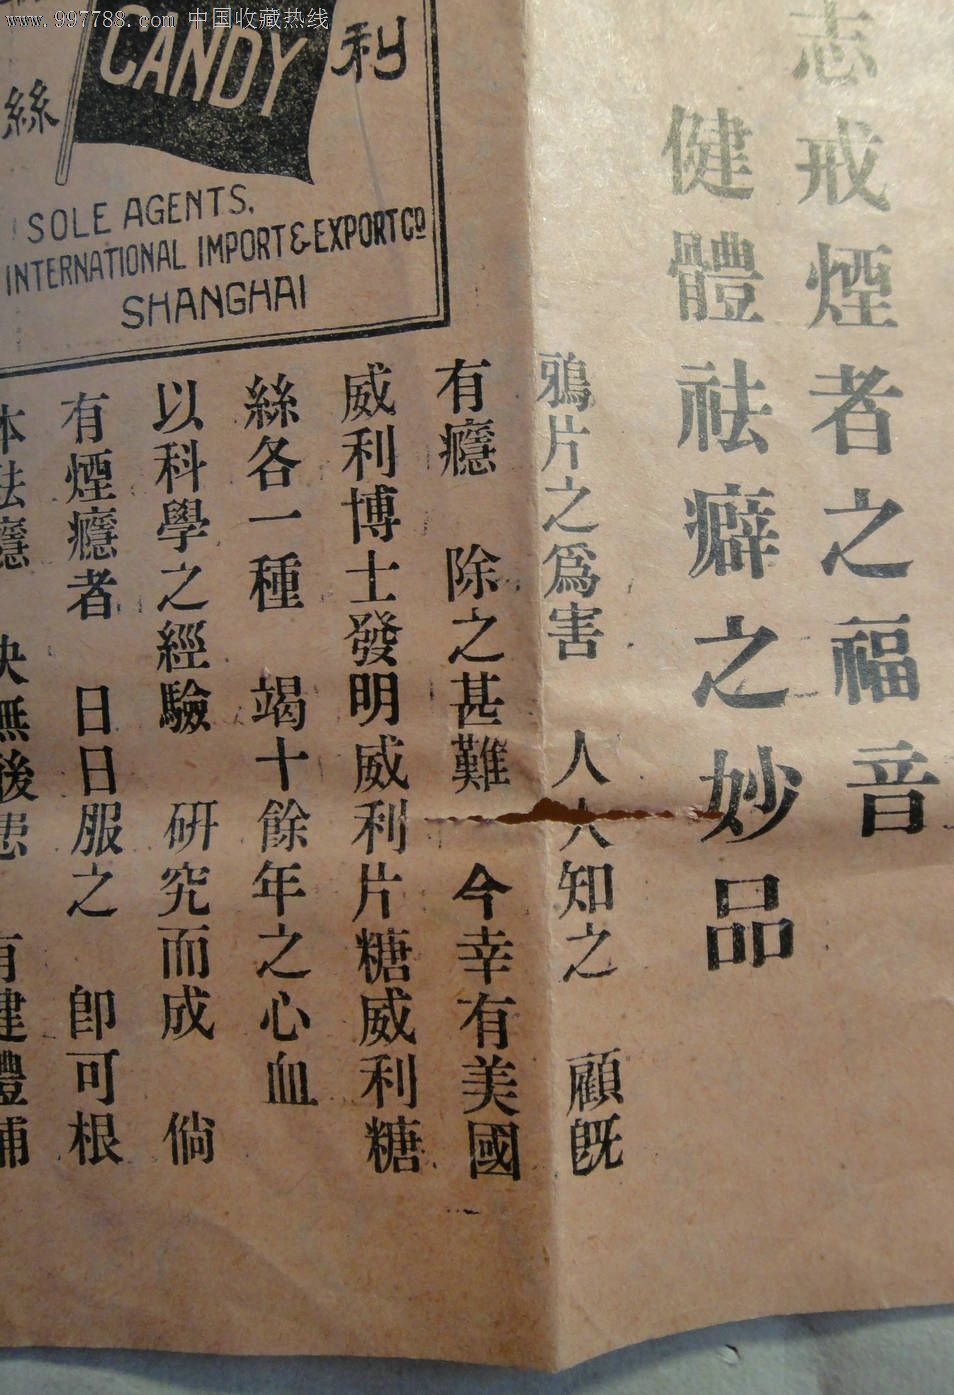 www.997788.com 中国收藏热线
志戒煙者之福音
健體祛癖之妙品
鴉片之爲害 人人知之 顧旣
有癮 除之甚難 今幸有美國
威利博士發明威利片糖威利糖
絲各一種 竭十餘年之心血
以科學之經驗 研究而成 倘
有煙癮者 日日服之 卽可根
本祛癮 決無後患 有健體補
利
CANDY
絲
SOLE AGENTS.
INTERNATIONAL IMPORT & EXPORT CO
SHANGHAI